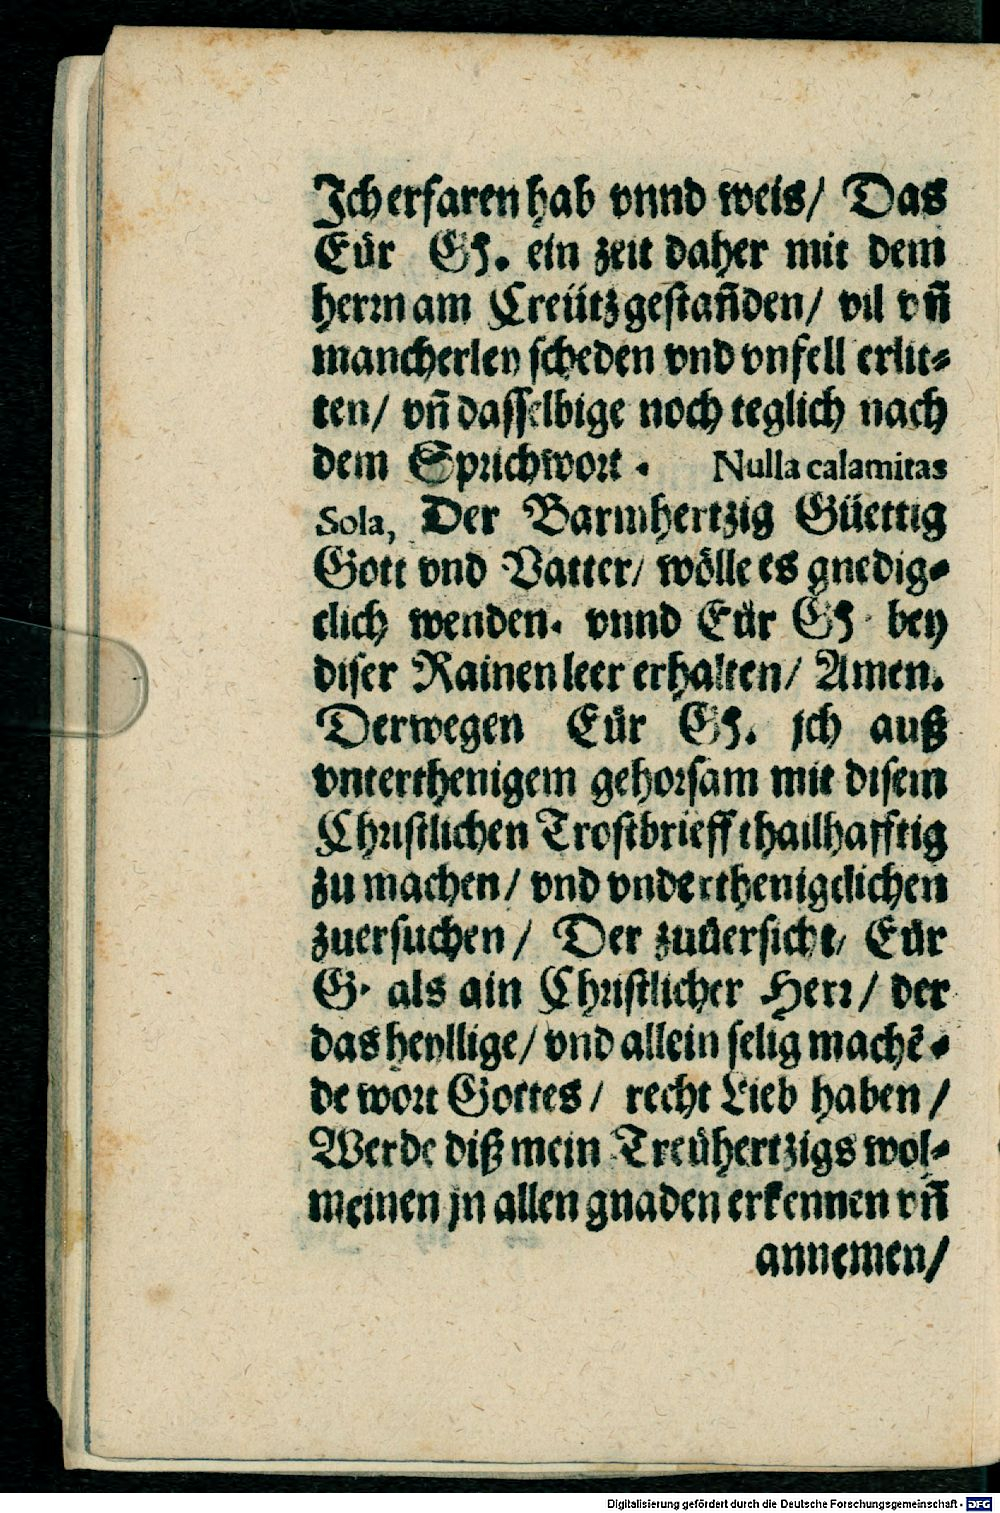 Ich erfaren hab vnnd weis/ Das
Eür GH. ein zeit daher mit dem
herrn am Creütz gestan̄den/ vil vn̄
mancherley scheden vnd vnfell erlit⸗
ten/ vn̄ dasselbige noch teglich nach
dem Sprichwort. Nulla calamitas
Sola, Der Barmhertzig Güettig
Gott vnd Vatter/ wölle es gnedig⸗
clich wenden. vnnd Eür GH bey
diser Rainen leer erhalten/ Amen.
Derwegen Eür GH. jch auß
vnterthenigem gehorsam mit disem
Christlichen Trostbrieff thailhafftig
zu machen/ vnd vnderthenigclichen
zuersuchen/ Der zuüersicht/ Eür
G. als ain Christlicher Herr/ der
das heyllige/ vnd allein selig machē⸗
de wort Gottes/ recht Lieb haben/
Werde diß mein Treühertzigs wol⸗
meinen jn allen gnaden erkennen vn̄
annemen/
Digitalisierung gefördert durch die Deutsche Forschungsgemeinschaft - DFG